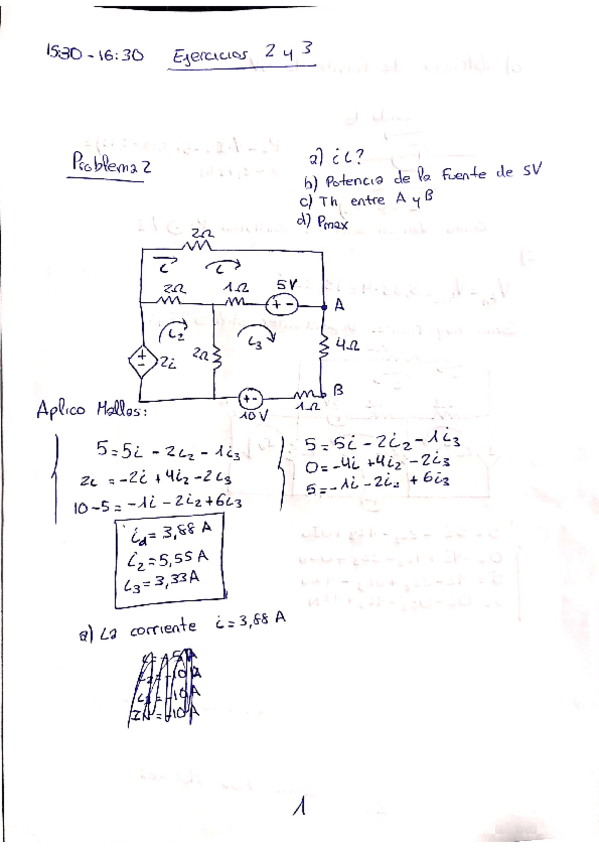 15:30 - 16:30 Ejercicios 2 y 3
Problema 2
a) i?
b) Potencia de la fuente de 5V
c) Th entre A y B
d) Pmax
2Ω
i
i
2Ω 1Ω 5V
+ -
A
i2
i3
4Ω
+
-
2i
2Ω
+ -
10V
1Ω
B
Aplico Mallas:
5=5i - 2i2 - 1i3
2i = -2i + 4i2 - 2i3
10-5 = -1i - 2i2 + 6i3
5 = 5i - 2i2 - 1i3
0 = -4i + 4i2 - 2i3
5 = -1i - 2i2 + 6i3
= 3,88 A
i2 = 5,55 A
i3 = 3,33 A
a) La corriente i = 3,88 A
1